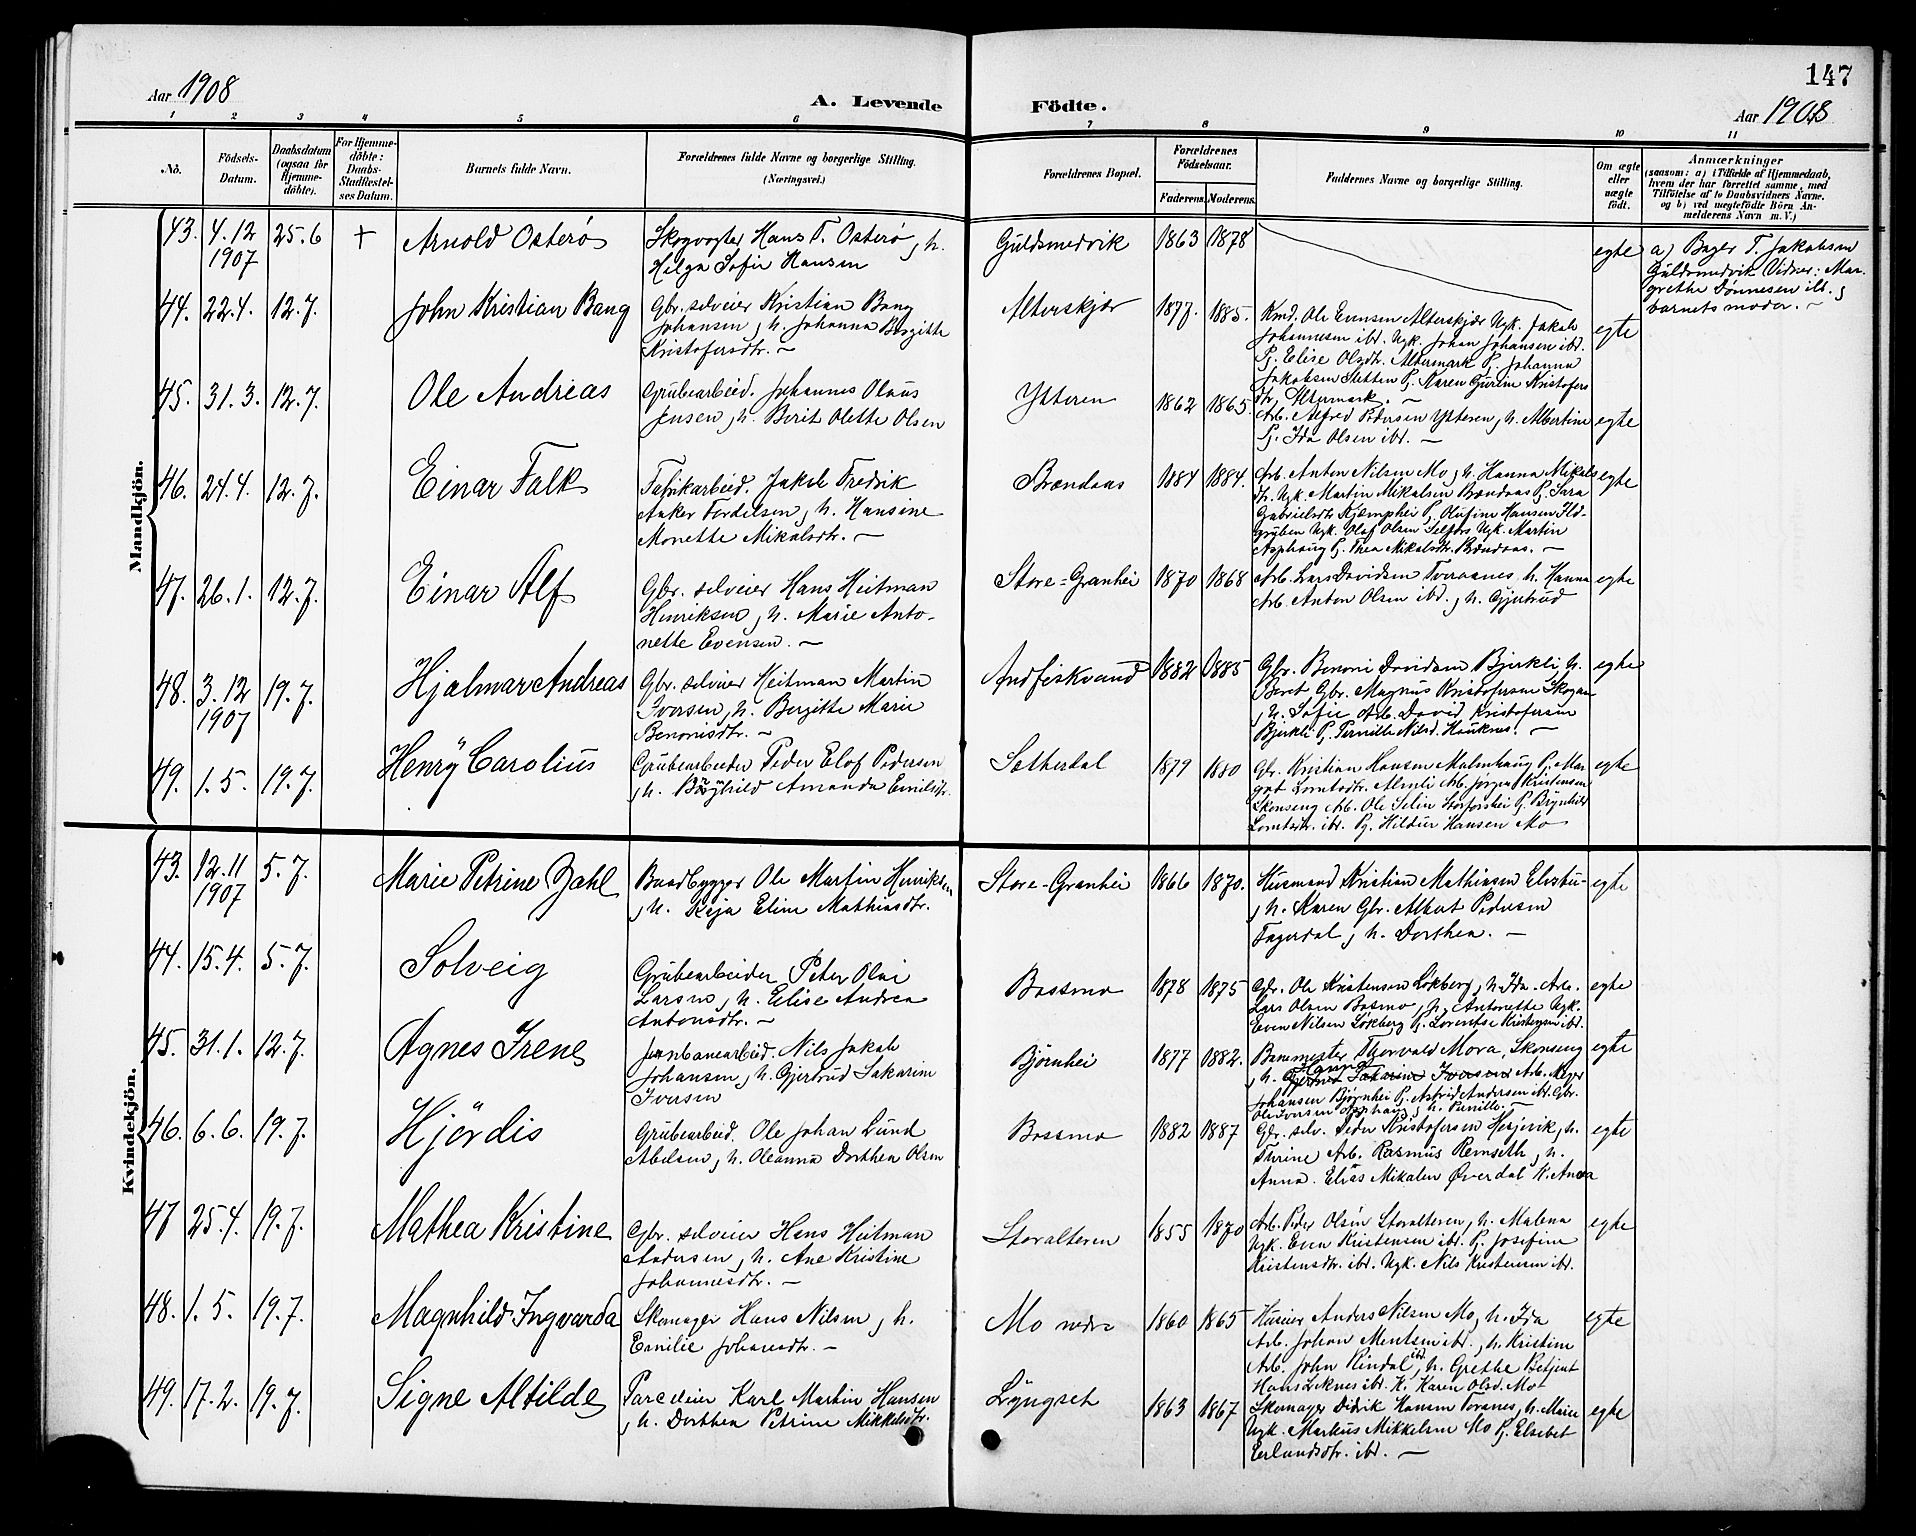 147
Aar 1908
A. Levende
Födte.
Aar 1908
1 2 3 4 5 6 7 8 9 10 11
No.
Födsels-Datum.
Daabsdatum (ogsaa for Hjemmedöbte).
For Hjemmedöbte: Daabs-Stadfæstelses Datum.
Barnets fulde Navn.
Forældrenes fulde Navne og borgerlige Stilling. (Næringsvei.)
Forældrenes Bopæl.
Forældrenes Födselsaar.
Faderens. Moderens.
Faddernes Navne og borgerlige Stilling.
Om ægte eller uægte födt.
Anmærkninger
(saasom: a) i Tilfælde af Hjemmedaab, hvem der har forrettet samme, med Tilföielse af to Daabsvidners Navne, og b) ved uægtefödte Börn Anmelderens Navn m. V.)
Mandkjön.
43. 4.12 1907 25.6 + Arnold Osterø
Skogvogter Hans T. Osterø, h.
Helga Sofie Hansen
Guldsmedvik 1863 1878 egte
a) Bager T. Jakobsen
Guldsmedvik Vidner: Mar-
grethe Dønnesen ibd. &
barnets moder. –
44. 22.4. 12.7. John Kristian Bang
Gbr. selveier Kristian Bang
Johansen, h. Johanna Bergitte
Kristofersdtr. –
Alterskjær 1877. 1885. egte
Kmd. Ole Evensen Alterskjær Ugk. Jakob
Johannesen ibd. Ugk. Johan Johansen ibd.
Pj. Elise Olsdtr. Altermark Pj. Johanna
Jakobsen Sletten Pj. Karen Gurine Kristofers
dtr. Altermark. –
45. 31.3. 12.7. Ole Andreas
Grubearbeid. Johannes Olaus
Jensen, h. Berit Olette Olsen
Ytteren 1862 1865. egte
Arb. Alfred Pedersen Ytteren, h. Albertine
Pj. Ida Olsen ibd. –
46. 24.4. 12.7. Einar Falk
Fabrikarbeid. Jakob Fredrik
Anker Fordelsen, h. Hansine
Monette Mikalsdtr. –
Brændaas 1884 1884. egte
Arb. Anton Nilsen Mo, h. Hanna Mikals
dtr. Ugk. Martin Mikalsen Brændaas Pj. Sara
Gabrielsdtr. Kjæmphei Pj. Olufine Hansen Ild-
gruben Ugk. Olaf Olsen Selfors Ugk. Martin
Asphaug Pj. Thea Mikalsdtr. Brændaas. –
47. 26.1. 12.7. Einar Alf
Gbr. selveier Hans Heitman
Henriksen, h. Marie Anto-
nette Evensen. –
Store-Granhei 1870 1868 egte
Arb. Lars Davidsen Tveraanes, h. Hanna
Arb. Anton Olsen ibd., h. Gjertrud
48. 3.12 1907 19.7. Hjalmar Andreas
Gbr. selveier Heitman Martin
Iversen, h. Bergitte Marie
Benonisdtr. –
Andfiskvand 1882 1885 egte
Gbr. Benoni Davidsen Bjerkli, h.
Beret Gbr. Magnus Kristofersen Skogan
, h. Sofie Arb. David Kristofersen
Bjerkli Pj. Pernille Nilsd. Hauknes. –
49. 1.5. 19.7. Henry Carolius
Grubearbeider Peder Elof Pedersen
, h. Borghild Amanda Emilsdtr.
Sætherdal 1879 1880 egte
Gbr. Kristian Hansen Malmhaug Pj. Mar
grt Lorntsdtr. Almli Arb. Jørgen Kristensen
Skonseng Arb. Ole Selin Storforshei Pj. Brynhild
Lorntsdtr. ibd. Pj. Hildur Hansen Mo
Kvindekjön.
43. 12.11 1907 5.7. Marie Petrine Zahl
Baadbygger Ole Martin Henriksen
, h. Kaja Eline Mathiasdtr.
Store-Granhei 1866 1870. egte
Husmand Kristian Mathiasen
, h. Karen Gbr. Albert Pedersen
Fagerdal, h. Dorthea. –
44. 15.4. 5.7. Solveig
Grubearbeider Peter Olai
Larsen, h. Elise Andrea
Antonsdtr. –
Bossmo 1878 1875 egte
Gbr. Ole Kristensen Løkberg, h. Ida. Arb.
Lars Olsen Bosmo, h. Antonette Ugk.
Even Nilsen Løkberg Pj. Lorentse Kristensen ibd.
45. 31.1. 12.7. Agnes Irene
Jernbanearbeid. Nils Jakob
Johansen, h. Gjertrud Sakarine
Iversen
Bjørnhei 1877 1882. egte
Banemester Thorvald Mora, Skonseng
, h. Hanna Arb. Meyer
Johansen Bjørnhei Pj. Astrid Andersen ibd. Gbr.
Ole Iversen Asphaug, h. Pernille. –
46. 6.6. 19.7. Hjørdis
Grubearbeid. Ole Johan Lund
Abelsen, h. Oleanna Dorthea Olsen
Bossmo 1882 1887 egte
Gbr. selv. Peder Kristofersen Hesjevik, h.
Thrine Arb. Rasmus Remseth, h.
Anna. Elias Mikalsen Øverdal K. Anna
47 25.4. 19.7. Mathea Kristine
Gbr. selveier Hans Heitman
Andersen, h. Ane Kristine
Johannesdtr. –
Storalteren 1855 1870 egte
Arb. Peder Olsen Storalteren, h. Malena
Ugk. Even Kristensen ibd. Pj. Josefine
Kristensdtr. ibd. Ugk. Nils Kristensen ibd.
48. 1.5. 19.7. Magnhild Ingvarda
Skomager Hans Nilsen, h.
Emilie Johansdtr. –
Mo nedre 1860 1865 egte
Husier Anders Nilsen Mo, h. Ida
Arb. Johan Mentsen ibd., h. Kristine
Arb. John Rindal ibd, h. Grethe Betjent
Hans Leknes ibd. K. Karen Olsd. Mo
49. 17.2. 19.7. Signe Altilde
Parceleier Karl Martin Hansen
, h. Dorthea Petrine Mikkelsdtr.
Lyngset 1863 1867 egte
Skomager Didrik Hansen Toranes, h. Marie
Ugk. Markus Mikkelsen Mo Pj. Elsebet
Erlandsdtr. ibd. –